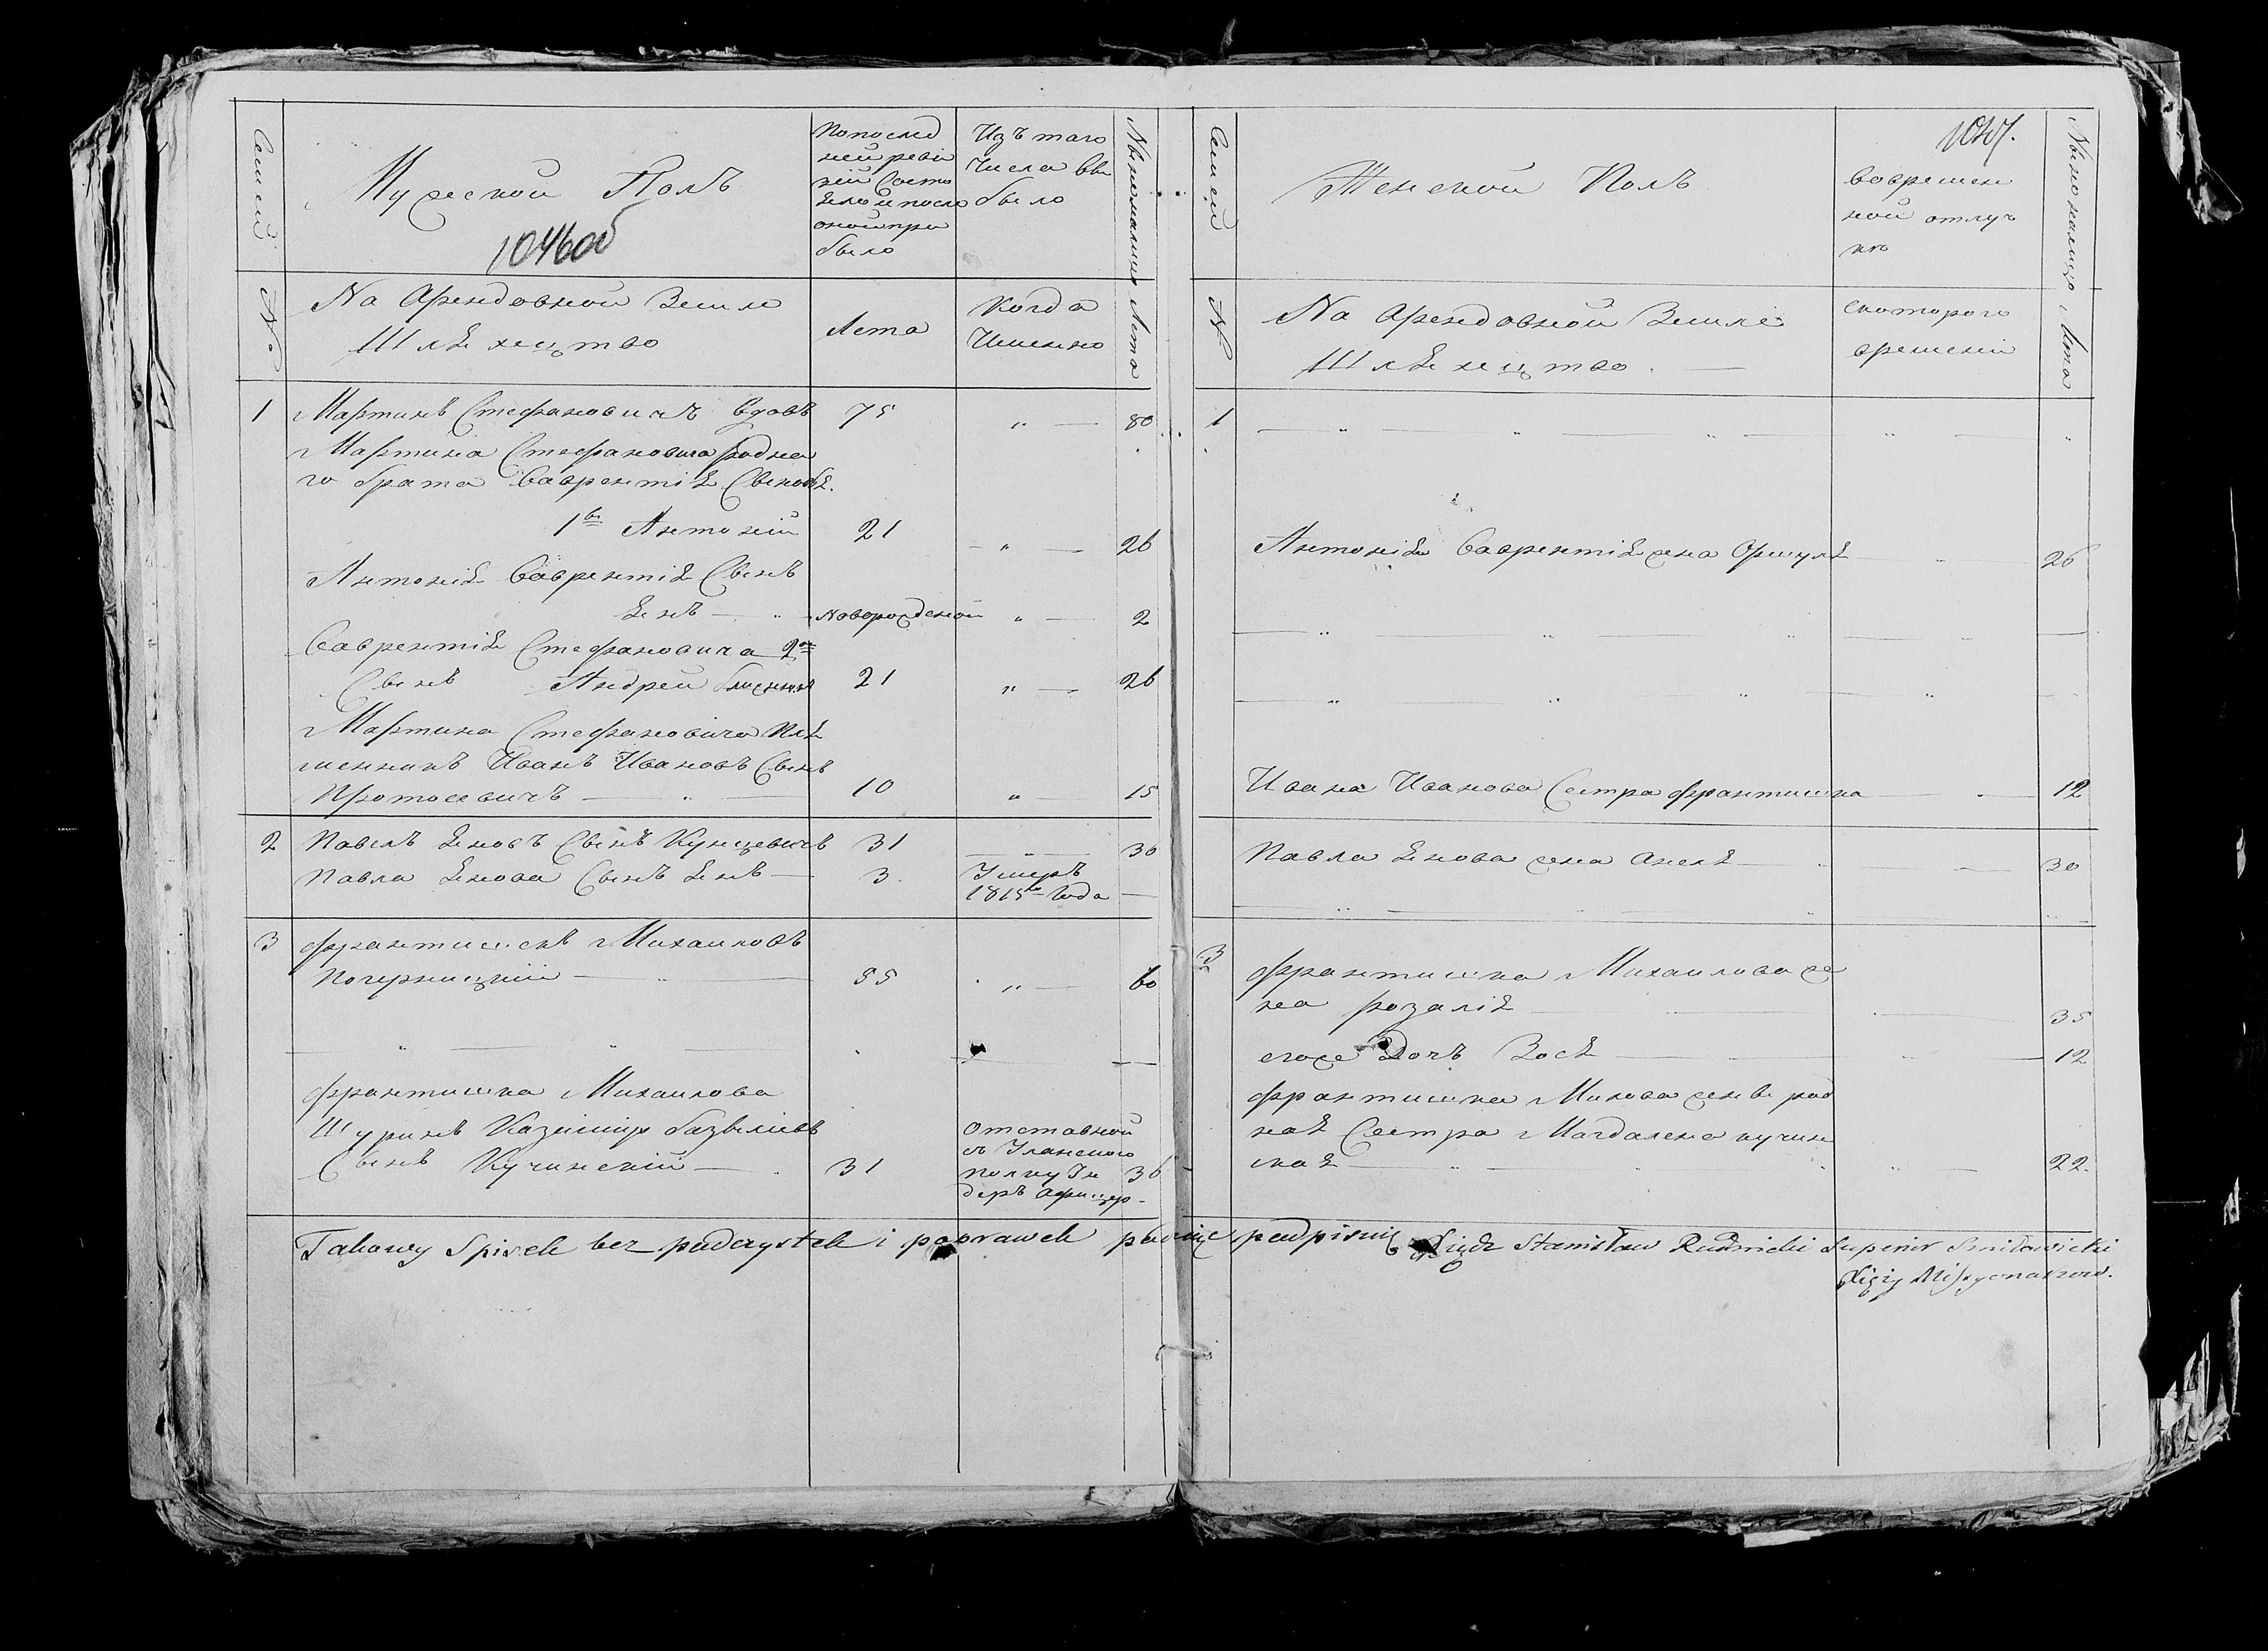 Семей
№
Мужеской Полъ
1046об
Попослед
ней реви
зіи Состо
яло и после
оной при
было
Изъ того
Числа вы
было
Нынесналицо Лета
На Арендовной Земле
Шляхецтво
Лета
Когда
Имменно
1 Мартинъ Стефановичъ вдовъ 75 „ — 80
Мартина Стефановича родна
го брата Лаврентія Сыновья.
1ы Антоній 21 „ — 26
Антонія Лаврентія Сынъ
Янъ — „ Новорожденой „ — 2
Лаврентія Стефановича 2ой
Сынъ Андрей 21 „ — 26
Мартина Стефановича Пле
менникъ Иванъ Ивановъ Сынъ
Протосевичъ — „ — 10 „ — 15
2 Павелъ Яновъ Сынъ Кунцевичъ 31 — „ — 36
Павла Янова Сынъ Янъ — 3 Умеръ
1815 Года —
3 Франтишекъ Михаиловъ
Почерницкій — „ — 55 „ — 60
Франтишка Михаилова
Шуринъ Казимир Базыліевъ
Сынъ Кучинскій — 31
Отставной
съ Уланского
полку Ун 36
деръ Афицер-
Семей
№
Женской Полъ
1047.
Вовремен
ной отлуч
ке
Нынеснолицо Лета
На Арендовной Земле
Шляхецтво. —
скоторого
времени
1 — „ — „ — „ — „ — „
Антонія Лаврентія жена Оршуля — „ — 26
Ивана Иванова Сестра Франтишка — 12
Павла Янова жена Анеля — „ — 30
3 Франтишка Михаилова же
на Розалія — 35
егоже Дочъ Зося — 12
Франтишка Михова жены род
ная Сестра Магдалена кучин
ская — „ — 22.
Takowy Spisek bez podczystek i poprawek podpisuię Xiądz Stanisław Rudnicki Superior Smiłowicki
Xięży Missyonarzow.